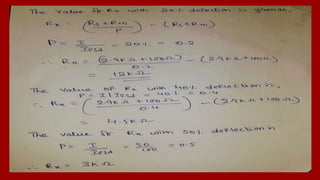 The value of Rx with 20% deflection is given as,
Rx = (Rs + Rm / P) - (Rs + Rm)
P = I / Ifsd = 20% = 0.2
∴ Rx = (2.9KΩ + 100Ω / 0.2) - (2.9KΩ + 100Ω)
= 12KΩ
The value of Rx with 40% deflection is,
P = I / Ifsd = 40% = 0.4
∴ Rx = (2.9KΩ + 100Ω / 0.4) - (2.9KΩ + 100Ω)
= 4.5KΩ
The value of Rx with 50% deflection is
P = I / Ifsd = 50 / 100 = 0.5
∴ Rx = 3KΩ